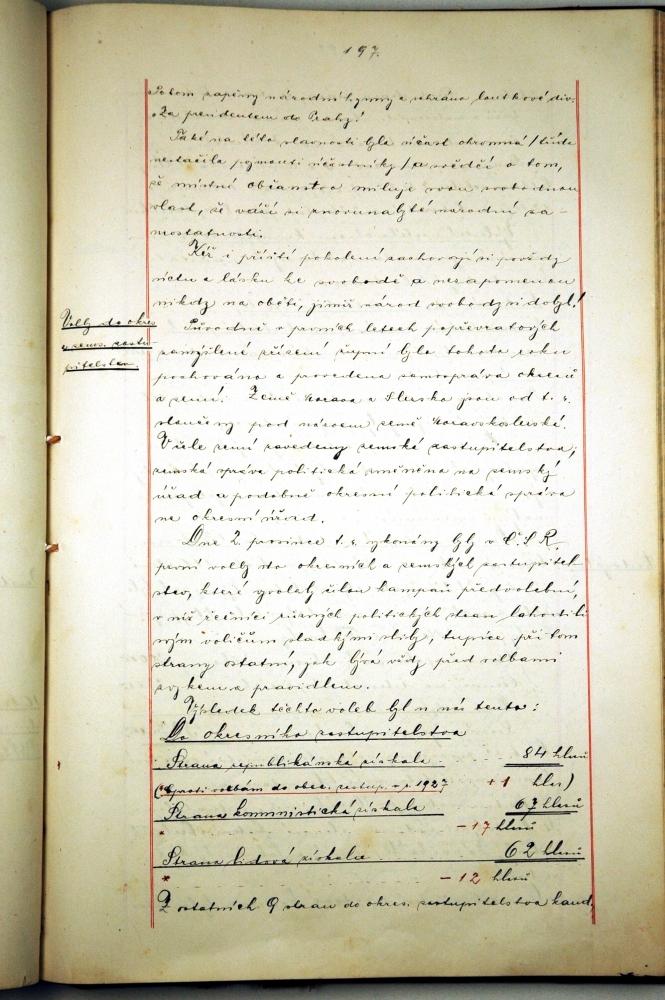 197.
Potom zapěny národní hymny a sehráno loutkové div.
"Za presidentem do Prahy!"
Také na této slavnosti byla účast ohromná /třída
nestačila pojmouti účastníky/ a svědčí o tom,
že místní občanstvo miluje svou svobodnou
vlast, že váží si znovunabyté národní sa-
mostatnosti.
Kéž i příští pokolení zachovají si povždy
úctu a lásku ke svobodě a nezapomenou
nikdy na oběti, jimiž národ svobody si dobyl!
Volby do okres.
a zems. zastu-
pitelstev.
Původně v prvních letech popřevratových
zamýšlené zřízení župní bylo tohoto roku
pochováno a provedena samospráva okresů
a zemí. Země Morava a Slezsko jsou od t. r.
sloučeny pod názvem země Moravskoslezská.
V čele zemí zavedeny zemská zastupitelstva,
zemská správa politická změněna na zemský
úřad a podobně okresní politická správa
na okresní úřad.
Dne 2. prosince t. r. vykonány byly v Č. S. R.
první volby do okresních a zemských zastupitel-
stev, které vyvolaly čilou kampaň předvolební,
v níž řečníci různých politických stran lahodili
svým voličům sladkými sliby, tupíce při tom
strany ostatní, jak bývá vždy před volbami
zvykem a pravidlem.
Výsledek těchto voleb byl u nás tento:
Do okresního zastupitelstva
Strana republikánská získala 84 hlasů
(Oproti volbám do obec. zastup. v r. 1927 +1 hlas)
Strana komunistická získala 67 hlasů
" - 17 hlasů
Strana lidová získala 62 hlasů
" - 12 hlasů
Z ostatních 9 stran do okres. zastupitelstva kand.